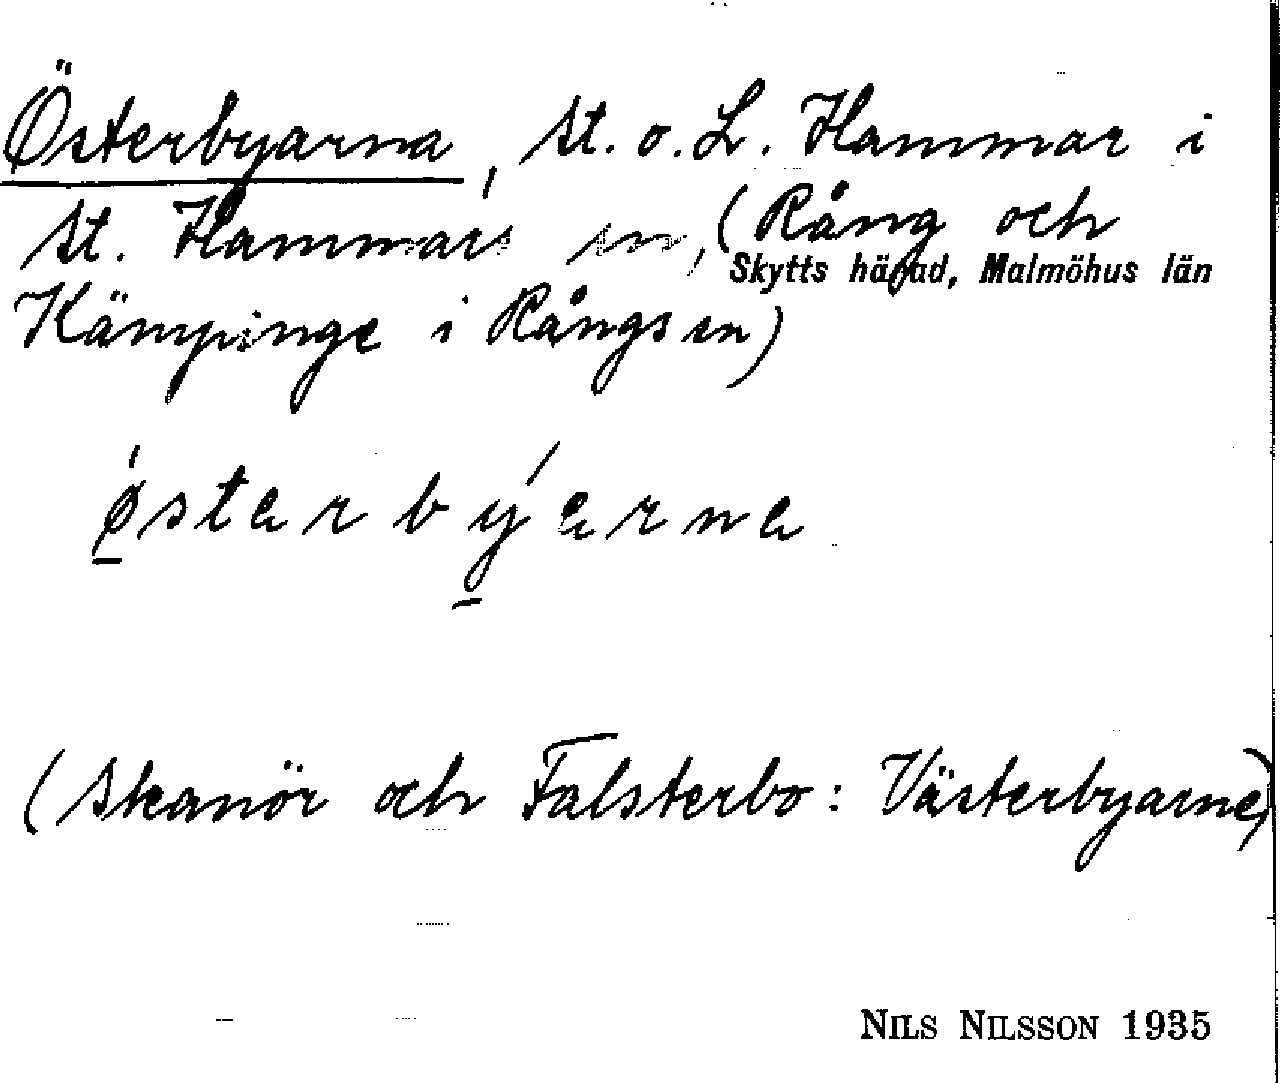 Österbyarna, St. o. L. Hammar i
St. Hammars sn, (Rång och
Skytts härad, Malmöhus län
Kämpinge i Rångs sn)
østɐrbýɐrnɐ
(Skanör och Falsterbo: Västerbyarne)
NILS NILSSON 1935